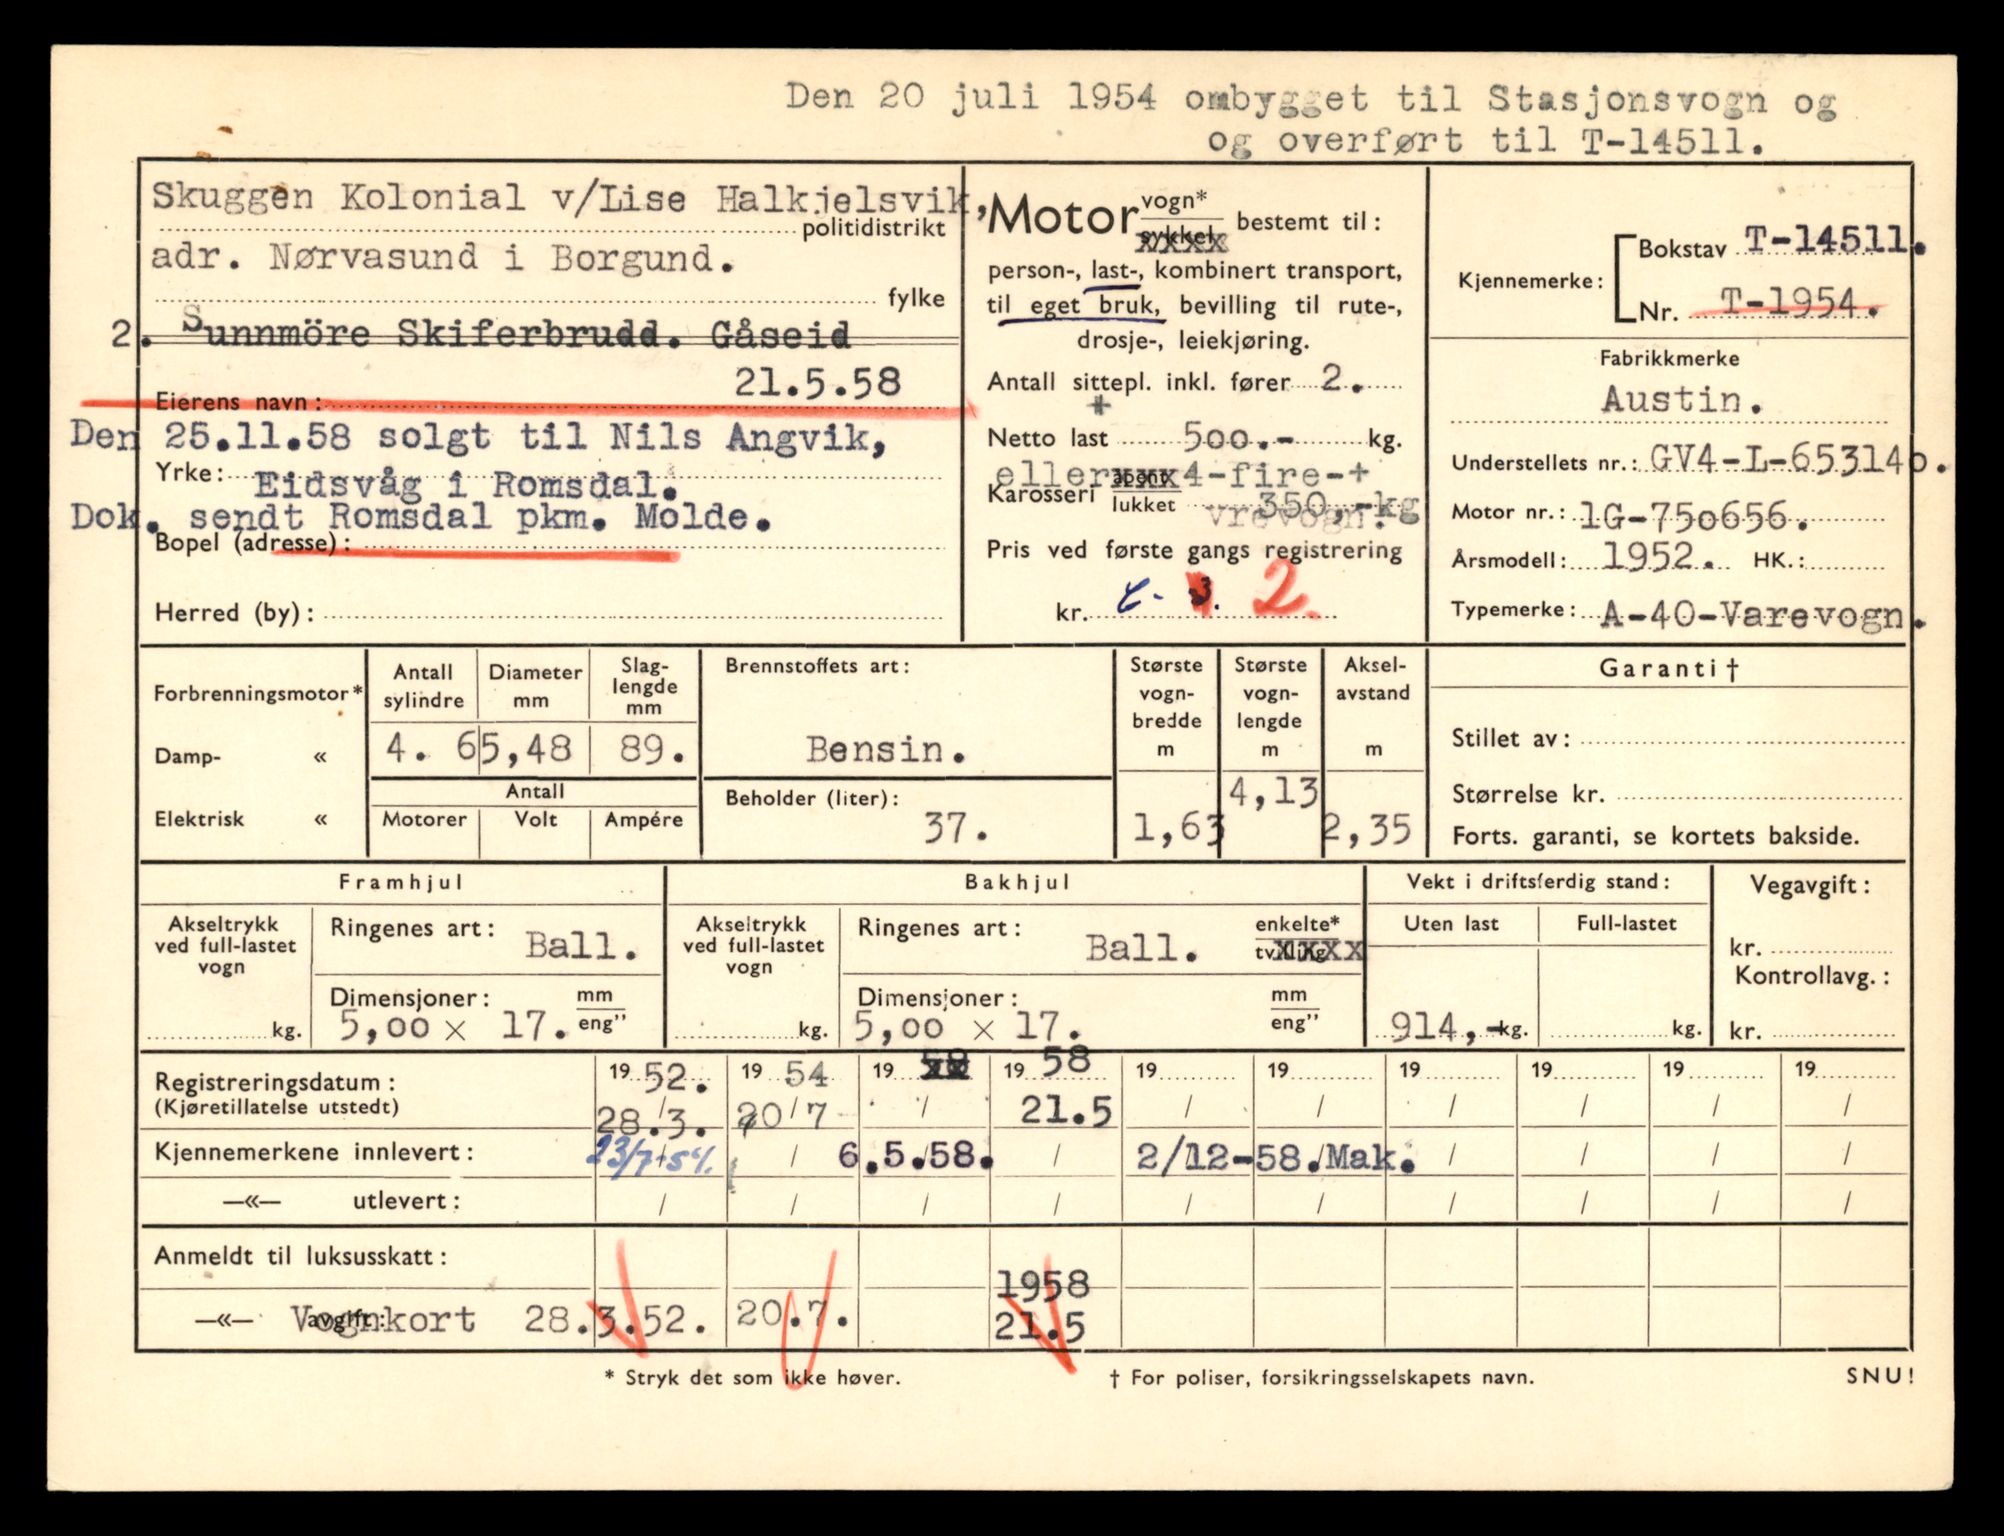 Den 20 juli 1954 ombygget til Stasjonsvogn og
og overført til T-14511.
Skuggen Kolonial v/Lise Halkjelsvik,
politidistrikt
adr. Nørvasund i Borgund.
fylke
2. Sunnmöre Skiferbrudd. Gåseid
21.5.58
Eierens navn:
Den 25.11.58 solgt til Nils Angvik,
Yrke: Eidsvåg i Romsdal.
Dok. sendt Romsdal pkm. Molde.
Bopel (adresse):
Herred (by):
Motor vogn* sykkel bestemt til:
person-, last-, kombinert transport,
til eget bruk, bevilling til rute-,
drosje-, leiekjøring.
Antall sittepl. inkl. fører 2.
+
Netto last 500.- kg.
eller xxx 4-fire-+
Karosseri åpent lukket 350,-kg
vrevogn.
Pris ved første gangs registrering
kr. 3. 2.
Kjennemerke: Bokstav T-14511.
Nr. T-1954.
Fabrikkmerke
Austin.
Understellets nr.: GV4-L-653140.
Motor nr.: 1G-750656.
Årsmodell: 1952. HK.:
Typemerke: A-40-Varevogn.
Forbrenningsmotor*
Damp- «
Elektrisk «
Antall sylindre
Diameter mm
Slag-lengde mm
4. 65,48 89.
Antall
Motorer Volt Ampére
Brennstoffets art:
Bensin.
Beholder (liter):
37.
Største vogn-bredde m
1,63
Største vogn-lengde m
4,13
Aksel-avstand m
2,35
Garanti †
Stillet av:
Størrelse kr.
Forts. garanti, se kortets bakside.
Framhjul
Akseltrykk ved full-lastet vogn
kg.
Ringenes art: Ball.
Dimensjoner: mm eng”
5,00 x 17.
Bakhjul
Akseltrykk ved full-lastet vogn
kg.
Ringenes art: Ball. enkelte* tvilling xxxx
Dimensjoner: mm eng”
5,00 x 17.
Vekt i driftsferdig stand:
Uten last Full-lastet
914,- kg. kg.
Vegavgift:
kr.
Kontrollavg.:
kr.
Registreringsdatum: 19 52. 19 54 19 58 xx 19 58 19 19 19 19 19 19
(Kjøretillatelse utstedt) 28/3. 20/7 / 21.5 / / / / / /
Kjennemerkene innlevert: 23/7-54. / 6.5.58. / 2/12-58. Mak. / / / /
—«— utlevert: / / / / / / / / / /
Anmeldt til luksusskatt: 1958
—«— avgift: Vognkort 28.3.52. 20.7. 21.5
* Stryk det som ikke høver.
† For poliser, forsikringsselskapets navn.
SNU!